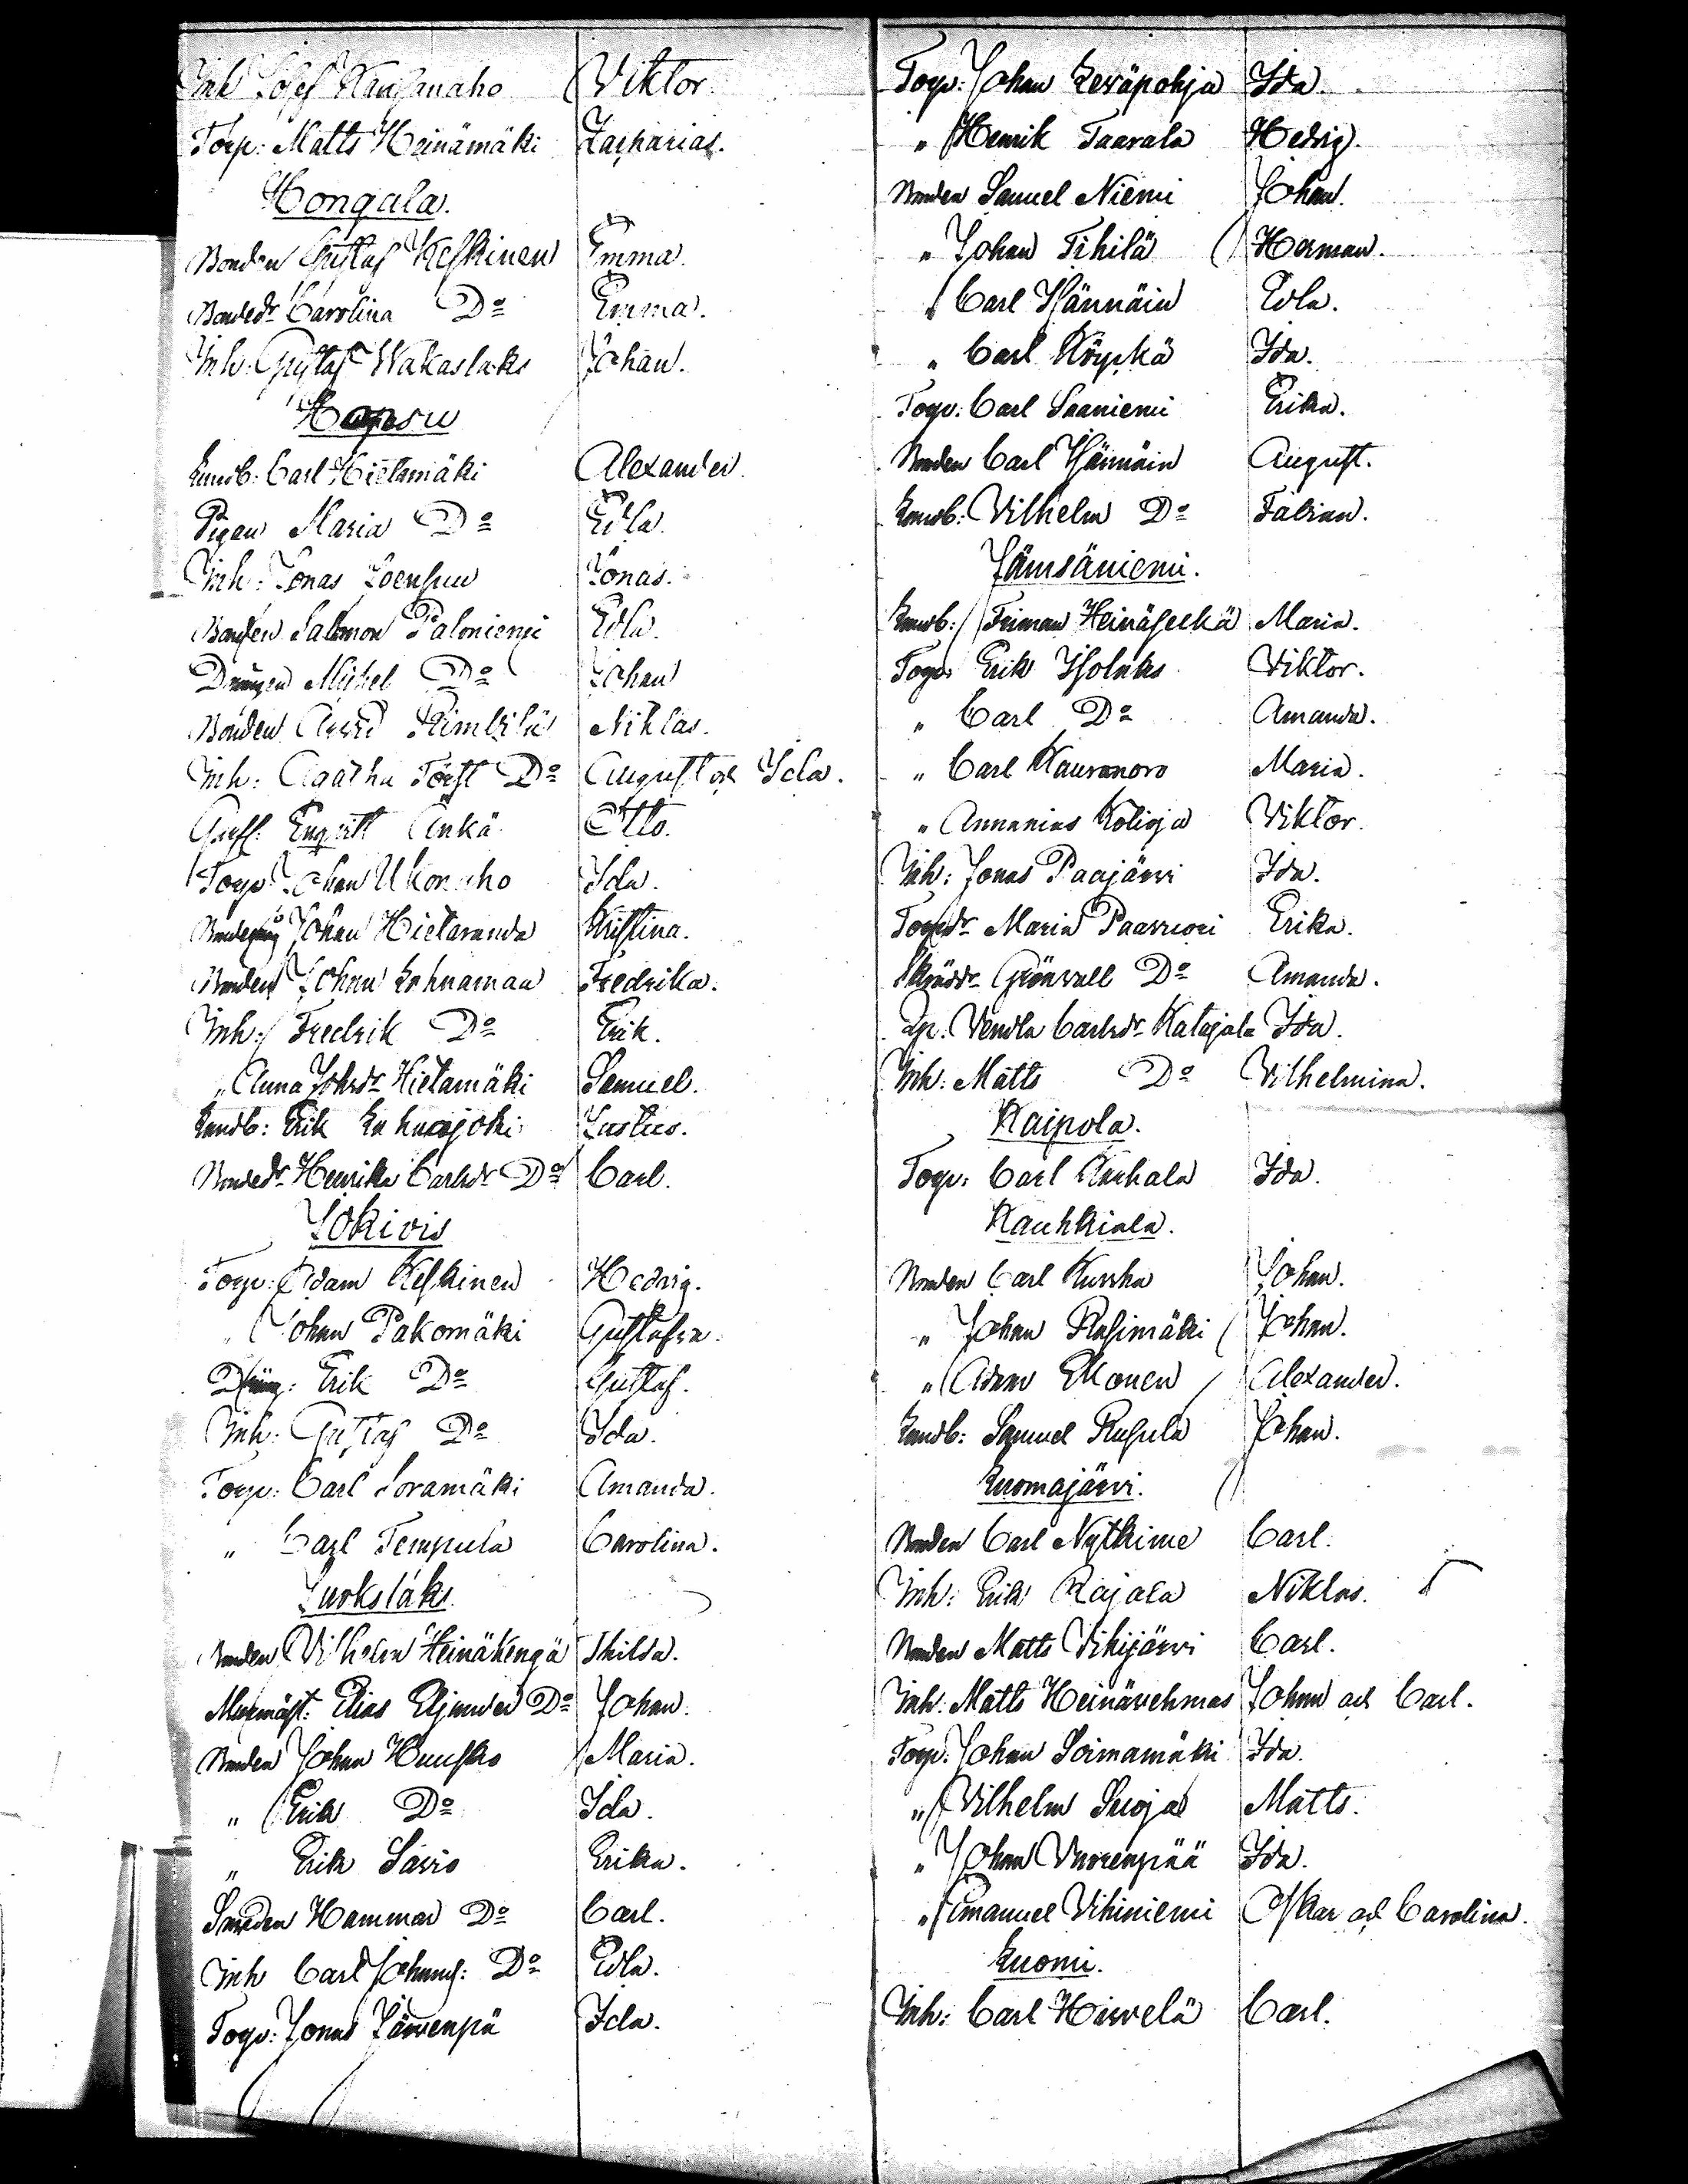 Inh Josef Kansanaho Viktor.
Torp: Matts Heinämäki Zacharias.
Hongala.
Bonden Gustaf Keskinen Emma.
Bondedr Carolina Do Emma.
Inh: Gustaf Wakaslaks Johan.
Hopsu
Landb: Carl Hietamäki Alexander.
Pigan Maria Do Edla.
Inh: Jonas Joensuu Jonas.
Bonden Salomon Paloniemi Edla.
Drängen Michel Do Johan
Bonden Niklas.
Inh: Agatha Do August och Ida.
Enqvist Ankä Otto.
Torp: Johan Ukonaho Ida.
Johan Hietaranda Kristina.
Bonden Johan Lahnamaa Fredrika.
Inh: Fredrik Do Erik.
" Anna Johsdr Hietamäki Samuel.
Landb: Erik Lahnajoki Justus.
Bondedr Henrika Carlsdr Do Carl.
Jokivis
Torp: Adam Keskinen Hedvig.
" Johan Pakomäki Gustafva.
Dräng: Erik Do Gustaf.
Inh: Gustaf Do Ida.
Torp: Carl Soramäki Amanda.
" Carl Tempula Carolina.
Juokslaks.
Bonden Vilhelm Heinäkengä Thilda.
Murmäst: Elias Do Johan.
Bonden Johan Huusko Maria.
" Erik Do Ida.
" Erik Savio Erika.
Smeden Hammar Do Carl.
Inh Carl Johans: Do Edla.
Torp: Jonas Järvenpä Ida.
Torp: Johan Leväpohja Ida.
" Henrik Taavala Hedvig.
Bonden Samuel Niemi Johan.
" Johan Tihilä Herman.
" Carl Hännäin Edla.
" Carl Köyckä Ida.
Torp: Carl Saaniemi Erika.
Bonden Carl Hännäin August.
Landb: Vilhelm Do Fabian.
Jämsäniemi.
Landb: Friman Heinäselkä Maria.
Torp: Erik Isolaks Viktor.
" Carl Do Amanda.
" Carl Kauranoro Maria.
" Annanias Kolioja Viktor.
Inh: Jonas Paajärvi Ida.
Torpdr Maria Paavuori Erika.
Skräddr Grönvall Do Amanda.
Vendla Carlsdr Katajala Ida.
Inh: Matts Do Vilhelmina.
Kaipola.
Torp: Carl Anhala Ida.
Kauhkiala.
Bonden Carl Kurkka Johan.
" Johan Rusimäki Johan.
" Adam Ekonen Alexander.
Landb: Samuel Rusula Johan.
Kuomajärvi.
Bonden Carl Nytkime Carl.
Inh: Erik Rajala Niklas.
Bonden Matts Vihijärvi Carl.
Inh: Matts Heinävehmas Johan och Carl.
Torp: Johan Soimamäki Ida.
" Vilhelm Suoja Matts.
" Johan Vuorenpää Ida.
" Emanuel Vihiniemi Oskar och Carolina.
Kuomi.
Inh: Carl Hirvelä Carl.